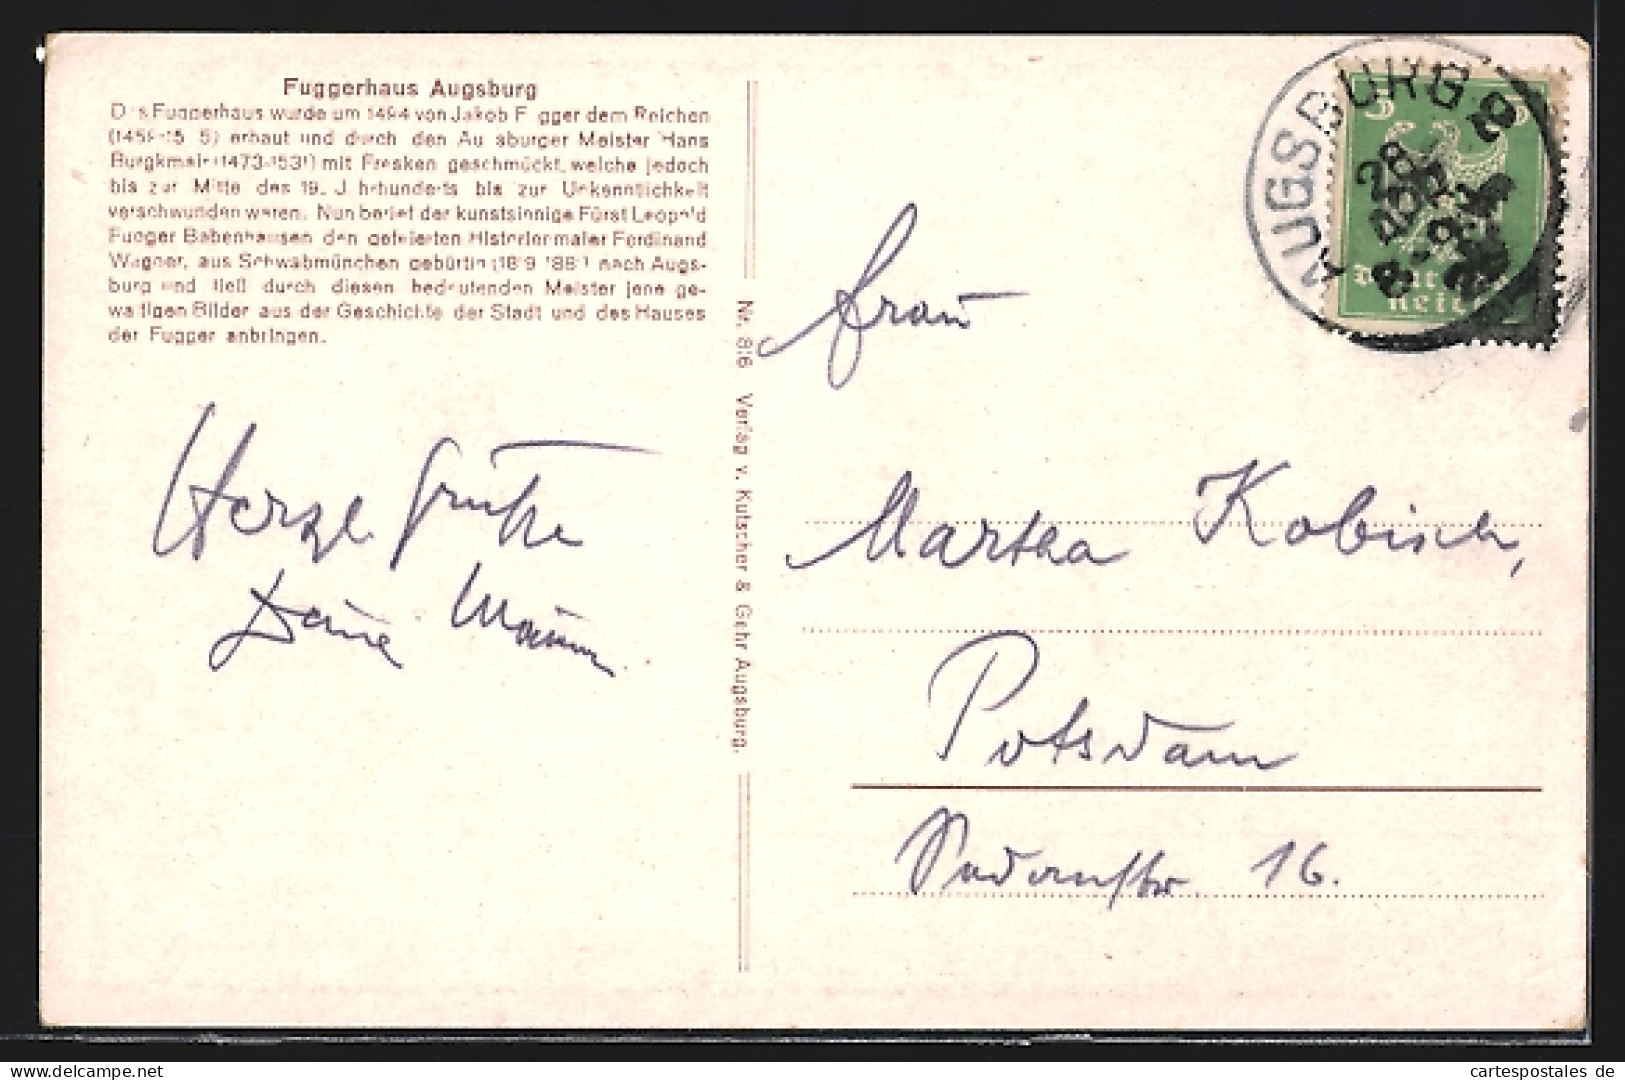 Fuggerhaus Augsburg
Das Fuggerhaus wurde um 1494 von Jakob Fugger dem Reichen
erbaut und durch den Augsburger Meister Hans
Burgkmair (1473-1531) mit Fresken geschmückt, welche jedoch
bis zur Mitte des 19. Jahrhunderts bis zur Unkenntlichkeit
verschwunden waren. Nun berief der kunstsinnige Fürst Leopold
Fugger Babenhausen den gefeierten Historienmaler Ferdinand
Wagner, aus Schwabmünchen gebürtig nach Augs-
burg und ließ durch diesen bedeutenden Meister jene ge-
waltigen Bilder aus der Geschichte der Stadt und des Hauses
der Fugger anbringen.
Herzl. Grüße
Deine
Nr. 816 Verlag v. Kutscher & Gehr Augsburg.
AUGSBURG 2
28
5 5
Frau
Martha Kobisch,
Potsdam
16.
cartespostales.de